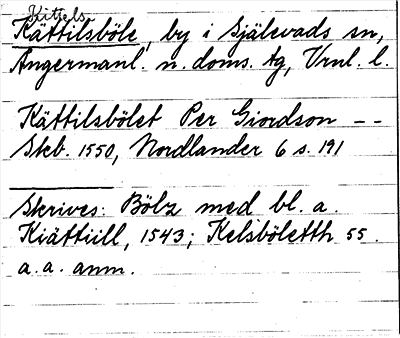 Kittels
Kättilsböle, by i Själevads sn,
Ångermanl. n. doms. tg, Vrnl. l.
Kättilsbölet Per Giordson - -
Skb. 1550, Nordlander 6 s. 191
Skrives: Bölz med bl. a.
Kiättiill, 1543; Kelsböletth 55.
a. a. anm.